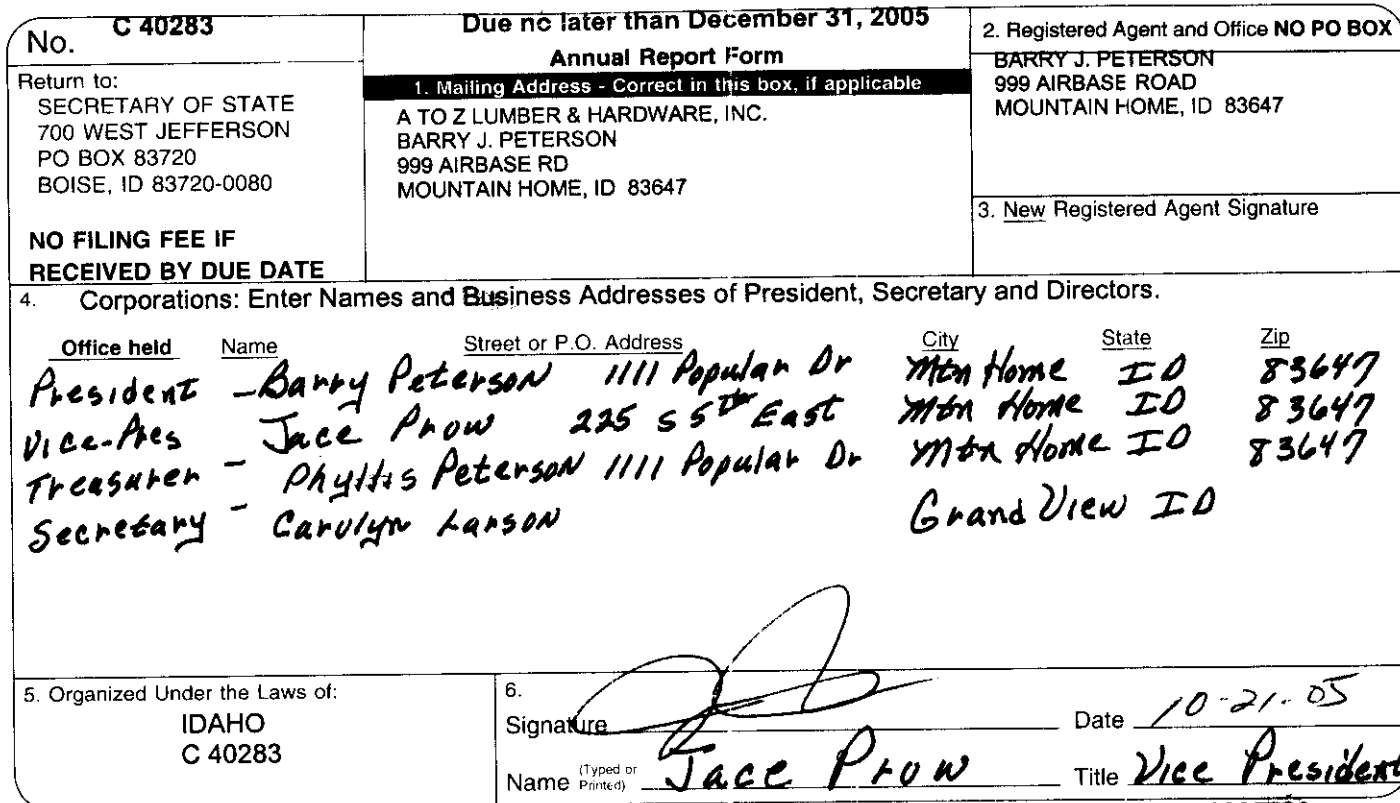 No. C 40283
Return to:
SECRETARY OF STATE
700 WEST JEFFERSON
PO BOX 83720
BOISE, ID 83720-0080
NO FILING FEE IF
RECEIVED BY DUE DATE
Due no later than December 31, 2005
Annual Report Form
1. Mailing Address - Correct in this box, if applicable
A TO Z LUMBER & HARDWARE, INC.
BARRY J. PETERSON
999 AIRBASE RD
MOUNTAIN HOME, ID 83647
2. Registered Agent and Office NO PO BOX
BARRY J. PETERSON
999 AIRBASE ROAD
MOUNTAIN HOME, ID 83647
3. New Registered Agent Signature
4. Corporations: Enter Names and Business Addresses of President, Secretary and Directors.
Office held Name Street or P.O. Address City State Zip
President - Barry Peterson 1111 Popular Dr Mtn Home ID 83647
Vice-Pres Jace Prow 225 S 5th East Mtn Home ID 83647
Treasurer - Phyllis Peterson 1111 Popular Dr Mtn Home ID 83647
Secretary - Carolyn Larson Grand View ID
5. Organized Under the Laws of:
IDAHO
C 40283
6.
Signature Date 10-21-05
Name (Typed or Printed) Jace Prow Title Vice President